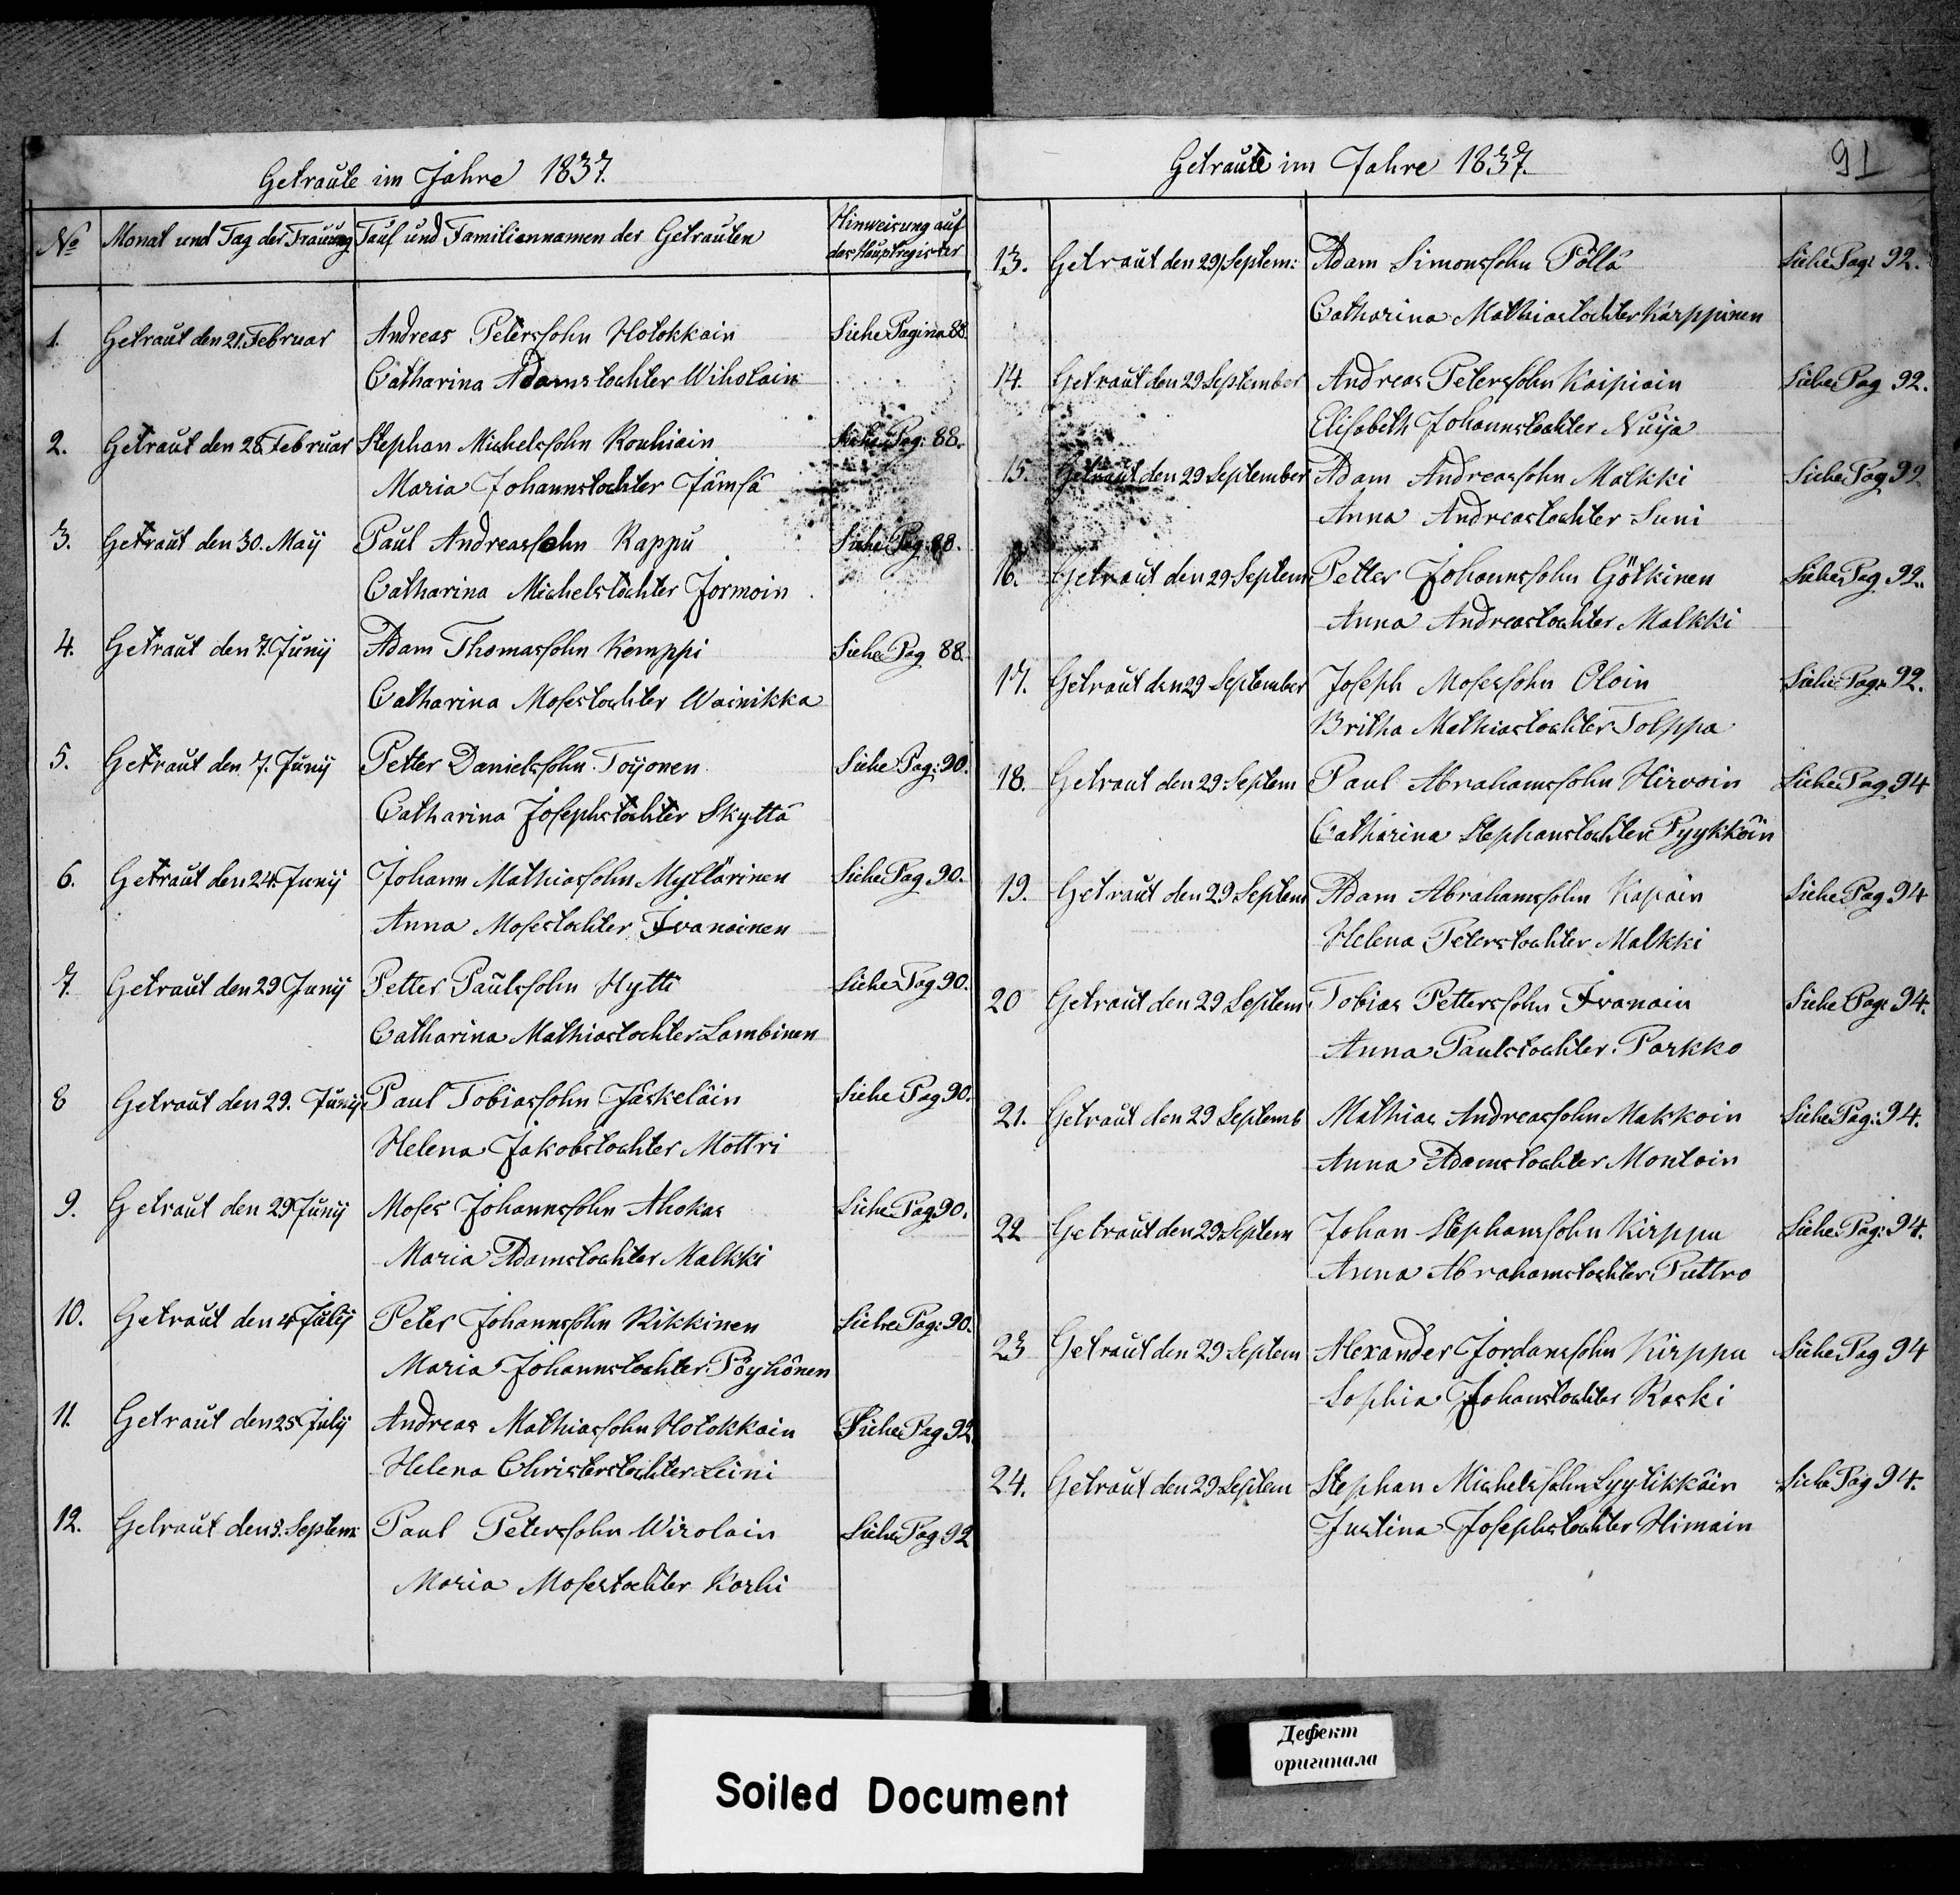 Getraute im Jahre 1837.
No Monat und Tag der Trauung Tauf und Familiennamen der Getrauten Hinweisung auf das Hauptregister
1. Getraut den 21. Februar Andreas Peterssohn Hotokkain Siehe Pagina 88.
Catharina Adamstochter Wiholain
2. Getraut den 28. Februar Stephan Michelssohn Rouhiain Siehe Pag: 88.
Maria Johannstochter Jämsä
3. Getraut den 30. May Paul Andreassohn Rappu Siehe Pag: 88.
Catharina Michelstochter Jormoin
4. Getraut den 7. Juny Adam Thomassohn Kemppi Siehe Pag 88.
Catharina Mosestochter Wainikka
5. Getraut den 7. Juny Petter Danielssohn Toijonen Siehe Pag: 90.
Catharina Josephstochter Skyttä
6. Getraut den 24. Juny Johann Mathiassohn Myllärinen Siehe Pag 90.
Anna Mosestochter Ivanainen
7. Getraut den 29 Juny Petter Paulssohn Hytti Siehe Pag 90.
Catharina Mathiastochter Lambinen
8 Getraut den 29. Juny Paul Tobiassohn Jäskeläin Siehe Pag 90.
Helena Jakobstochter Mottri
9. Getraut den 29 Juny Moses Johannssohn Ahokas Siehe Pag 90.
Maria Adamstochter Malkki
10. Getraut den 4 July Peter Johannssohn Rikkinen Siehe Pag: 90.
Maria Johannstochter Pöyhönen
11. Getraut den 25 July Andreas Mathiassohn Hotokkain Siehe Pag 92.
Helena Christerstochter Leini
12. Getraut den 5. Septem: Paul Peterssohn Wirolain Siehe Pag 92
Maria Mosestochter Korhi
Getraute im Jahre 1837.
91
13. Getraut den 29 Septem: Adam Simonssohn Pöllä Siehe Pag: 92.
Catharina Mathiastochter Karppinen
14. Getraut den 29 September Andreas Peterssohn Kaipiain Siehe Pag 92.
Elisabeth Johannstochter Nuija
15. Getraut den 29 September Adam Andreassohn Malkki Siehe Pag 92
Anna Andreastochter Suni
16. Getraut den 29 Septem: Petter Johannssohn Götkinen Siehe Pag 92.
Anna Andreastochter Malkki
17. Getraut den 29 September Joseph Mosessohn Oloin Siehe Pag: 92.
Britha Mathiastochter Tolppa
18. Getraut den 29 Septem Paul Abrahamssohn Hirvoin Siehe Pag 94
Catharina Stephanstochter Pyykköin
19. Getraut den 29 Septem Adam Abrahamssohn Kapain Siehe Pag 94
Helena Peterstochter Malkki
20 Getraut den 29 Septem Tobias Petterssohn Ivanain Siehe Pag: 94.
Anna Paulstochter Parkko
21. Getraut den 29 Septemb Mathias Andreassohn Makkoin Siehe Pag: 94.
Anna Adamstochter Montoin
22 Getraut den 29 Septem Johan Stephanssohn Kirppu Siehe Pag: 94.
Anna Abrahamstochter Puttro
23 Getraut den 29 Septem Alexander Jordanssohn Kirppu Siehe Pag 94
Sophia Johanstochter Raski
24. Getraut den 29 Septem Stephan Michelssohn Lyylikkäin Siehe Pag 94.
Justina Josephstochter Himain
Soiled Document
Дефект
оригинала